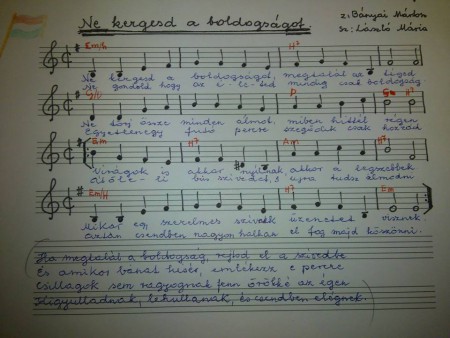 Ne kergesd a boldogságot
z: Bányai Márton
sz: László Mária
Em/h H7
Ne kergesd a boldogságot, megtalál az téged
Ne gondold hogy az életed mindig csak boldogság.
G/D D G H7
Ne törj össze minden álmot, miben hittél régen
Egyetlenegy futó percre szegődik csak hozzád
Em H7 Am H7
Virágok is akkor nyílnak, akkor a legszebbek
bús szívedet, s újra tudsz álmodni
Em/H H7 Em
Mikor egy szerelmes szívnek üzenetet visznek.
Aztán csendben nagyon halkan el fog majd köszönni.
Ha megtalál a boldogság, rejtsd el a szívedbe
És amikor bánat kísér, emlékezz e percre
Csillagok sem ragyognak fenn örökké az égen
Kigyulladnak, lehullanak, és csendben elégnek.